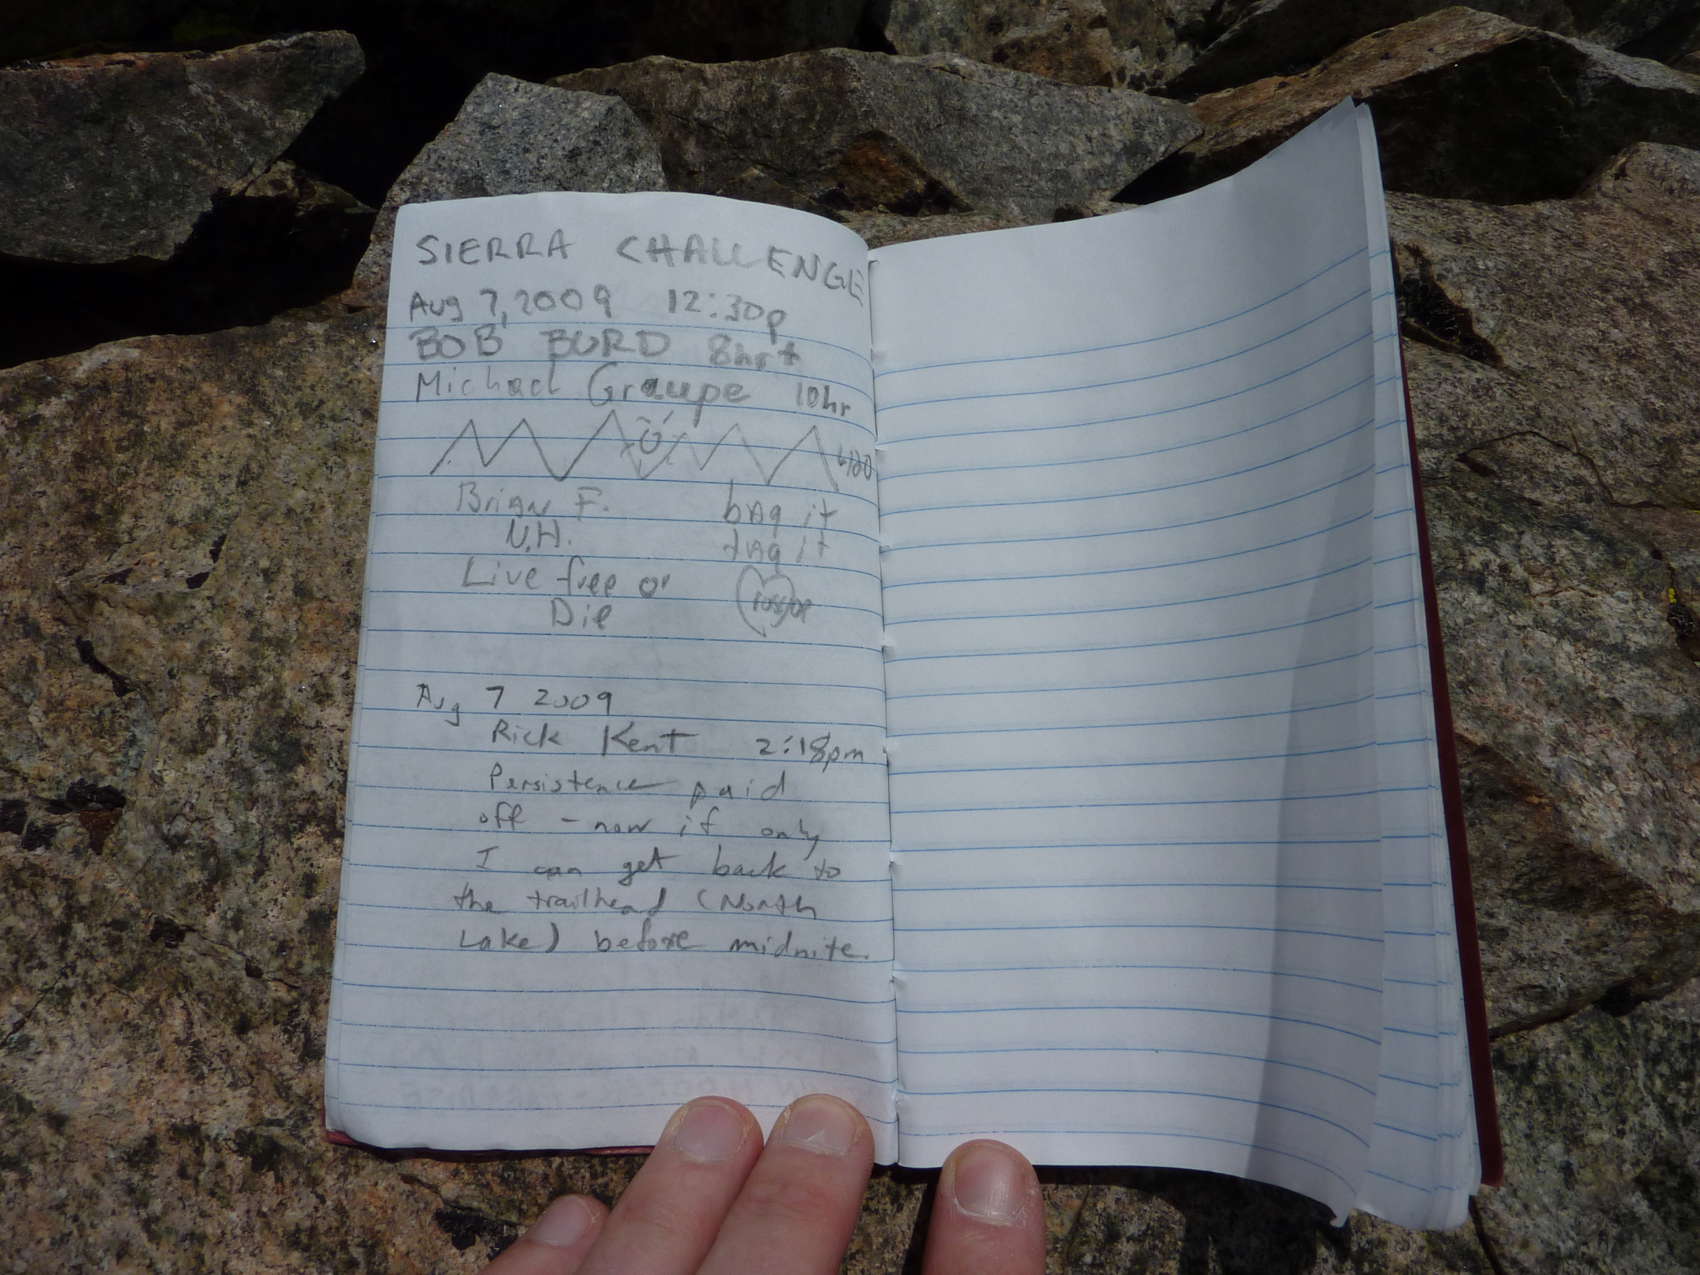 SIERRA CHALLENGE
Aug 7, 2009 12:30p
BOB BURD 8hr+
Michael Graupe 10hr
Brian F. bag it
N.H. tag it
Live free or
Die
Aug 7 2009
Rick Kent 2:18pm
Persistence paid
off - now if only
I can get back to
the trailhead (North
Lake) before midnite.